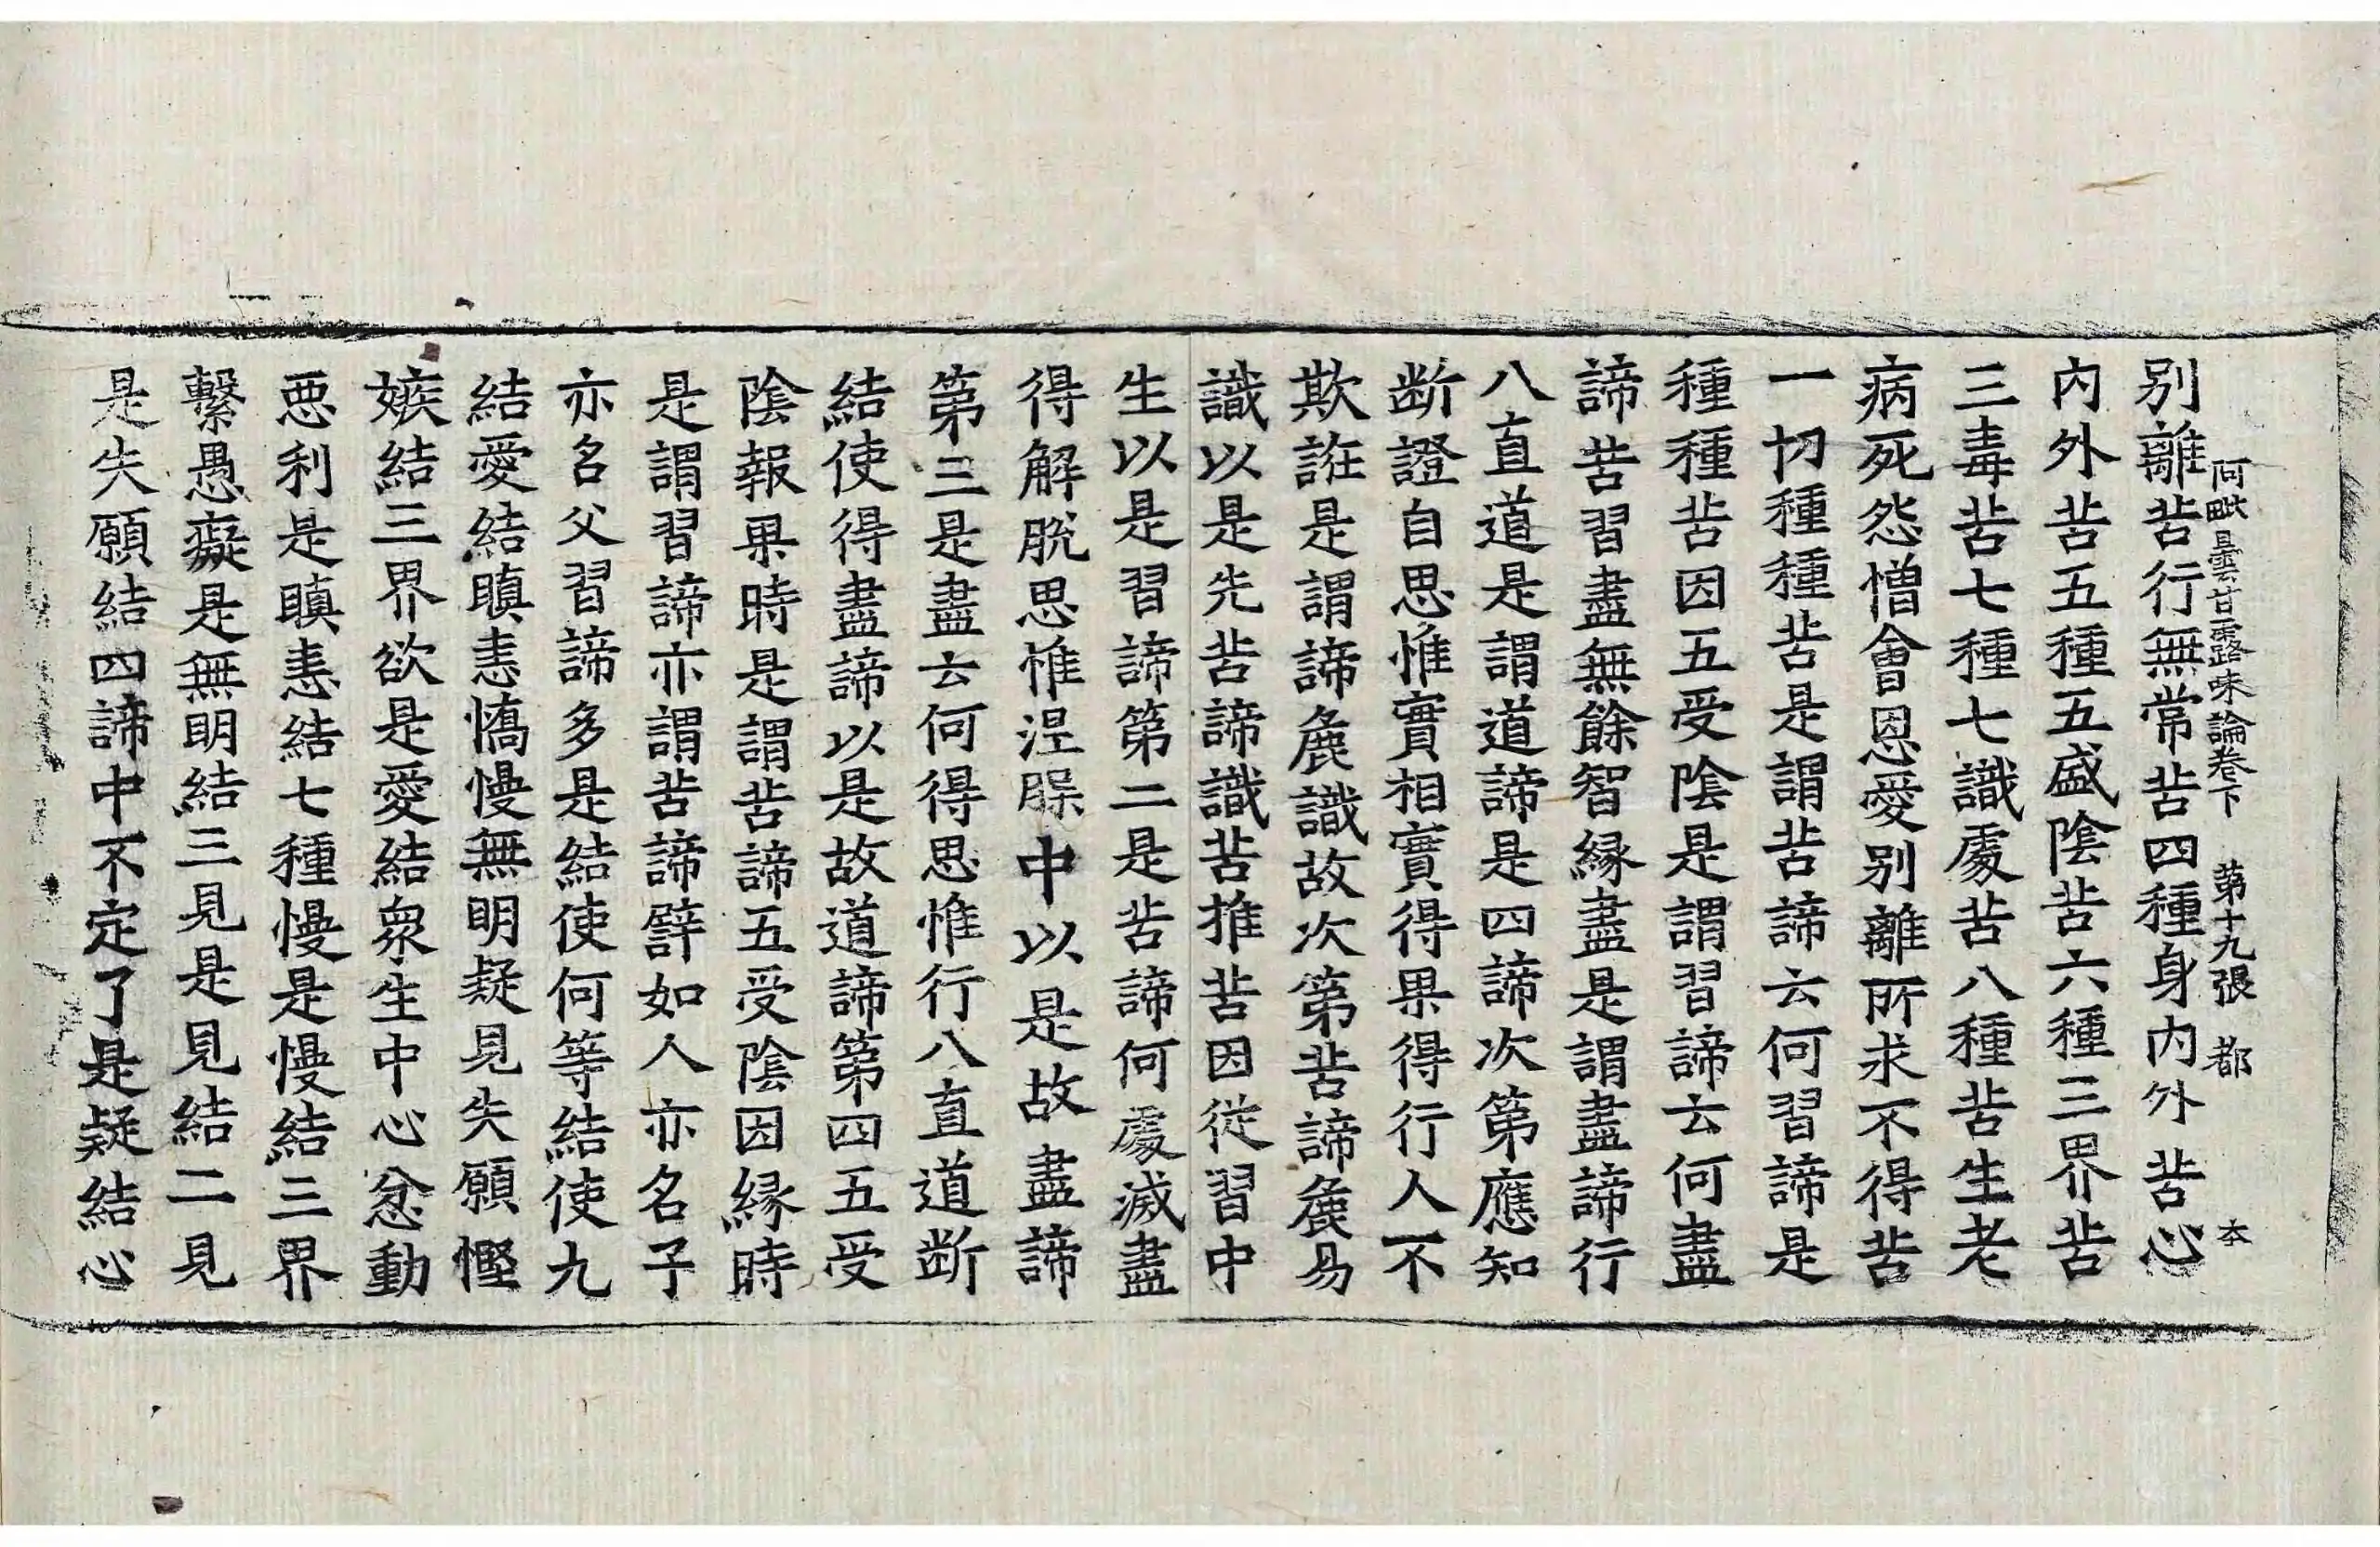 阿毗曇甘露味論卷下　第十九張　都　夲
別離苦行無常苦四種身內外苦心
內外苦五種五盛陰苦六種三界苦
三毒苦七種七識處苦八種苦生老
病死怨憎會恩愛別離所求不得苦
一切種種苦是謂苦諦云何習諦是
種種苦因五受陰是謂習諦云何盡
諦苦習盡無餘智緣盡是謂盡諦行
八直道是謂道諦是四諦次第應知
断證自思惟實相實得果得行人不
欺誑是謂諦麁識故次第苦諦麁易
識以是先苦諦識苦推苦因從習中
生以是習諦第二是苦諦何處滅盡
得解脫思惟涅槃中以是故盡諦
第三是盡云何得思惟行八直道断
結使得盡諦以是故道諦第四五受
陰報果時是謂苦諦五受陰因緣時
是謂習諦亦謂苦諦譬如人亦名子
亦名父習諦多是結使何等結使九
結愛結瞋恚憍慢無明疑見失願慳
嫉結三界欲是愛結衆生中心忿動
惡利是瞋恚結七種慢是慢結三界
繫愚癡是無明結三見是見結二見
是失願結四諦中不定了是疑結心